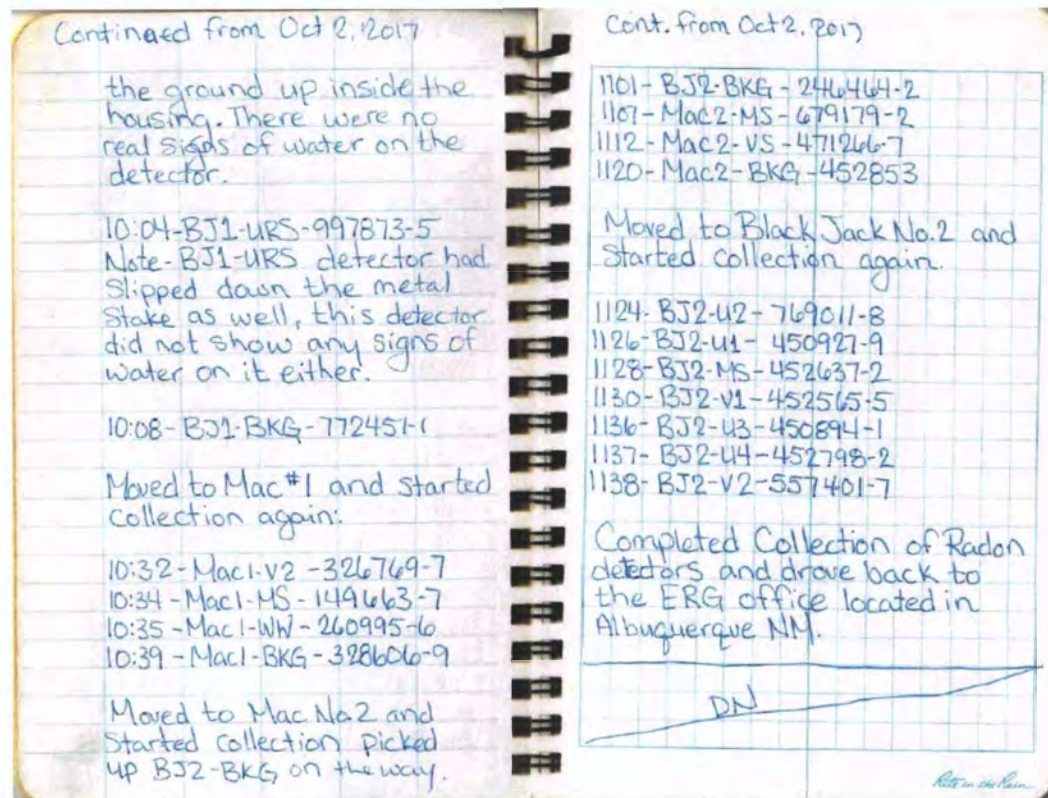 Continued from Oct 2, 2017
the ground up inside the
housing. There were no
real signs of water on the
detector.
10:04-BJ1-URS-997873-5
Note-BJ1-URS detector had
slipped down the metal
stake as well, this detector
did not show any signs of
water on it either.
10:08-BJ1-BKG-772451-1
Moved to Mac #1 and started
collection again:
10:32-Mac1-V2-326769-7
10:34-Mac1-MS-149663-7
10:35-Mac1-WW-260995-6
10:39-Mac1-BKG-328606-9
Moved to Mac No.2 and
Started collection picked
up BJ2-BKG on the way.
Cont. from Oct 2, 2017
1101-BJ2-BKG-246464-2
1107-Mac2-MS-679179-2
1112-Mac2-VS-471266-7
1120-Mac2-BKG-452853
Moved to Black Jack No.2 and
Started collection again.
1124-BJ2-U2-769011-8
1126-BJ2-U1-450927-9
1128-BJ2-MS-452637-2
1130-BJ2-V1-452565-5
1136-BJ2-U3-450894-1
1137-BJ2-U4-452798-2
1138-BJ2-V2-557401-7
Completed Collection of Radon
detectors and drove back to
the ERG office located in
Albuquerque NM.
DN
Rite in the Rain